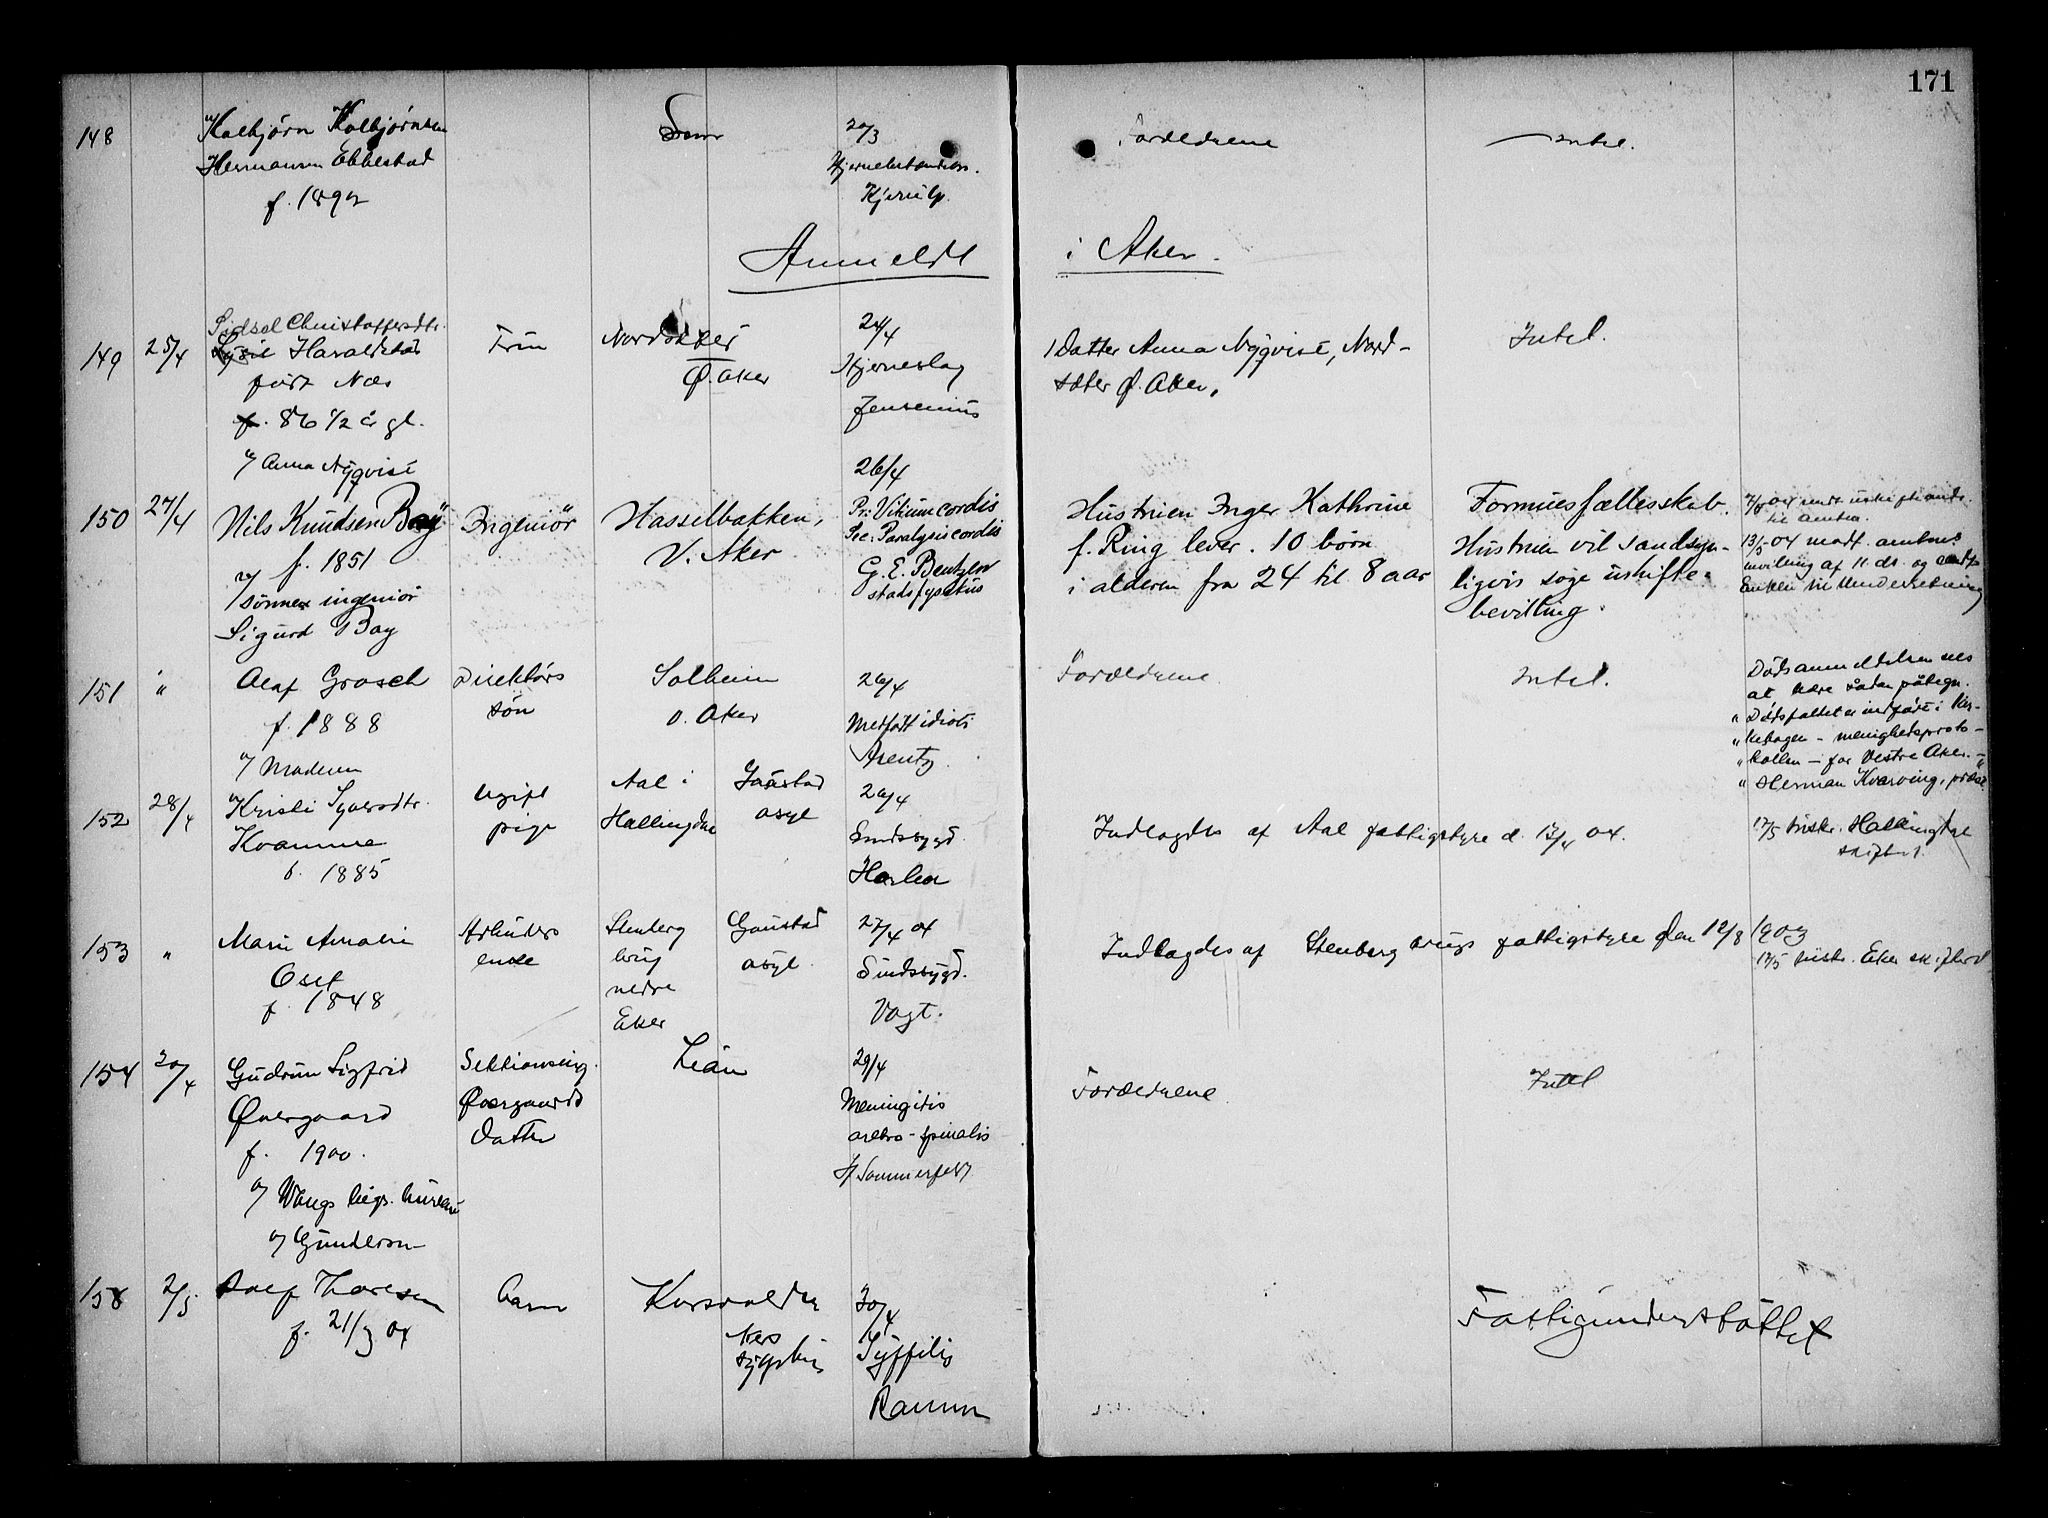 171
148
Kolbjørn Kolbjørnsen
Hermansen Ebbestad
f. 1892
Søn
20/3
Kjerulf
Forældrene
Intet.
Anmeldt i Aker.
149
25/4
Sidsel Christoffersdtr.
Haraldstad
født Næs
86 1/2 år gl.
v/ Anna Nyqvist
Frue
Nordsæter
Ø. Aker
24/4
Hjerneslag
Jensenius
1 Datter Anna Nyqvist, Nord-
sæter Ø. Aker.
Intet.
150
27/4
Nils Knudsen Bay
f. 1851
v/ sønnen ingeniør
Sigurd Bay
Ingeniör
Hasselbakken,
V. Aker
26/4
Pr: Vitium cordis
Sec: Paralysis cordis
G. E. Bentzen
stadsfysikus
Hustruen Inger Kathrine
f. Ring lever. 10 børn
i alderen fra 24 til 8 aar
Formuesfællesskab.
Hustruen vil sandsyn-
ligvis søge uskifte-
bevilling.
til amtm.
13/5 04 modt. amtm's
bevilling af 11. ds. og sendt
Enken til Underretning
151
"
Olaf Grosch
f. 1888
v/ Moderen
Direktørs
søn
Solheim
V. Aker
26/4
Medfødt idioti
Arentz
Forældrene.
Intet.
Dødsanmeldelsen sees
at være sådan påtegn.
" Dødsfaldet er indført i Kir-
" kebogen - menighedsproto-
" kollen - for Vestre Aker. - "
" Herman Kvarving, præst
152
28/4
Kristi Syversdtr.
Kvamme
f. 1885
ugift
pige
Aal i
Hallingdal
Gaustad
asyl
26/4
Sindssygd.
Indlagdes af Aal fattigstyre d. 13/4 04.
17/5 tilskr. Hallingdal
skifter.
153
"
Marie Amalie
Oset
f. 1848
Arbeiders
enke
Stenberg
brug
nedre
Eker
Gaustad
asyl.
27/4 04
Sindssygd.
Vogt.
Indlagdes af Stenberg brugs fattigstyre den 12/8 1903
17/5 tilskr. Eker skifteret
154
30/4
Gudrun Sigfrid
Øvergaard
f. 1900.
v/ Wangs begr. bureau
v/ Gundersen
Sektionsing.
Øvergaards
datter
Lian
29/4
Meningitis
cerebro-spinalis
Sommerfelt
Forældrene.
Intet
155
2/5
Rolf Thoresen
f. 21/3 04
barn
Korsvolden
Akers
sygehus
30/4
Syffilis
Ramm
Fattigunderstøttet